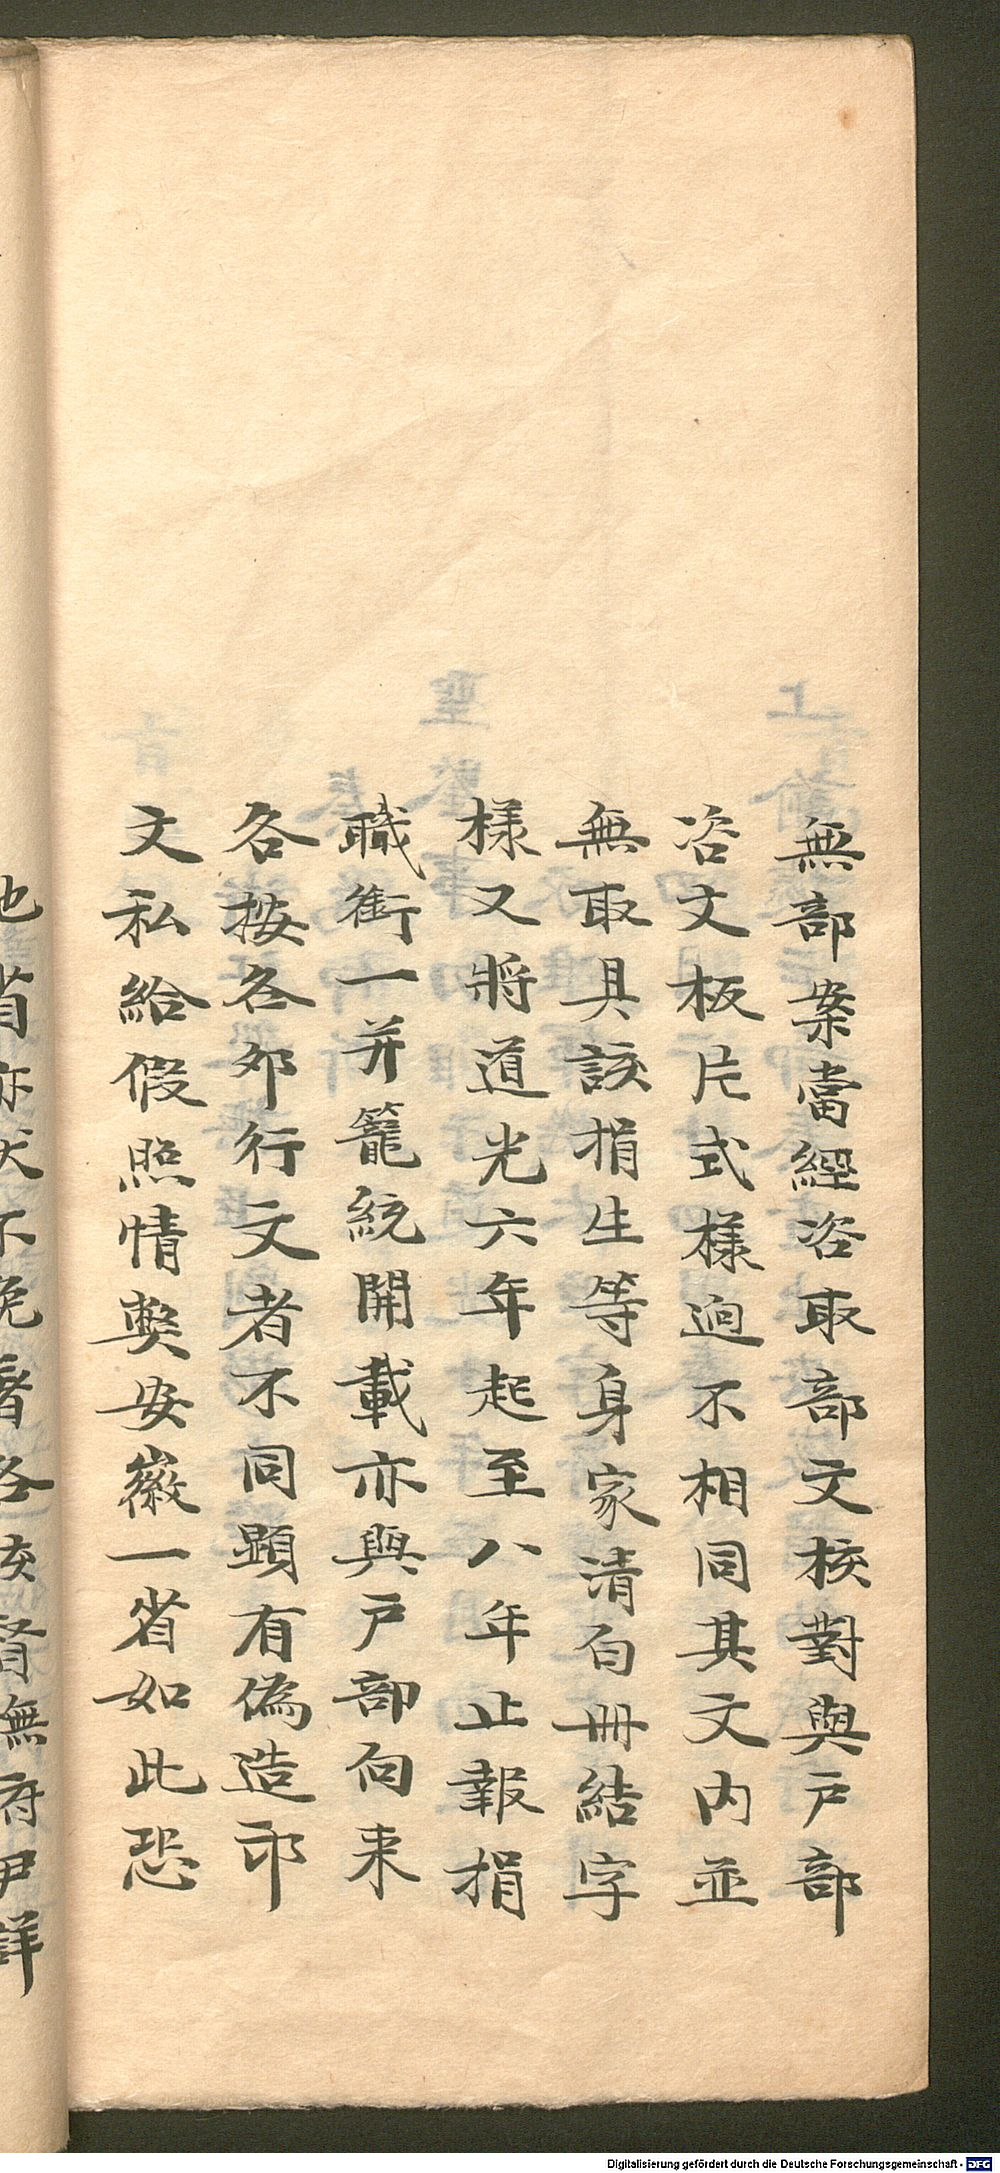 無部案當經咨取部文核對與戶部
咨文板片式樣迥不相同其文內並
無取具該捐生等身家清白冊結字
樣又將道光六年起至八年止報捐
職銜一并籠統開載亦與戶部向来
各按各邜行文者不同顕有偽造邜
文私給假照情獘安徽一省如此恐
Digitalisierung gefördert durch die Deutsche Forschungsgemeinschaft - DFG